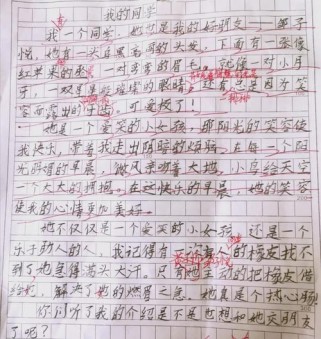 我的同学
我一个同学,她也是我的好朋友——邹子
悦,她有一头乌黑亮丽的头发,下面有一张像
红苹果的脸,一对弯弯的眉毛,就像一对小月
牙,一双星星般璀璨的眼睛,还有总是因为笑
容而露出的牙齿,可爱极了!
她是一个爱笑的小女孩,那阳光的笑容使
我快乐,带着我走出阴暗的烦恼。在每一个阳
光明媚的早晨,微风亲吻着大地,小鸟给天空
一个大大的拥抱。在这快乐的早晨,她的笑容
使我的心情更加美好。
她不仅仅是一个爱笑的小女孩,还是一个
乐于助人的人,我记得有一次,人的橡皮找不
到了她急得满头大汗。只有她主动的把橡皮借
给,解决了她的燃眉之急。她真是个热心肠
你们听了我的介绍是不是也想和她交朋友
了呢?